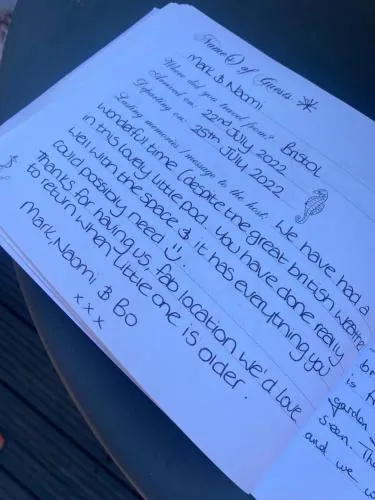 Name(s) of Guests
Mark & Naomi
Where did you travel from? Bristol
Arrived on: 22nd July 2022
Departing on: 25th July 2022
Lasting memories / message to the host: We have had a
wonderful time (despite the great british weather
in this lovely little pod. You have done really
well with the space & it has everything you
could possibly need :).
Thanks for having us, fab location we'd love
to return when little one is older.
Mark, Naomi & Bo
x x x
garden
seen. Th
and we